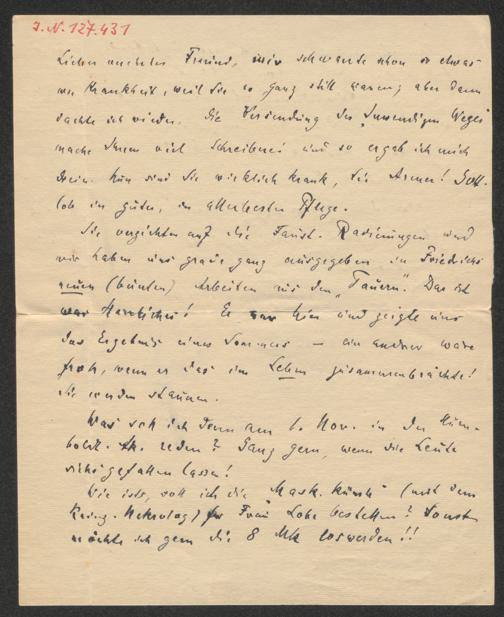 I.N. 127.431
Lieber verehrter Freund, mir schwante schon so etwas
von Krankheit, weil Sie so ganz still waren; aber dann
dachte ich wieder: die Versendung des „Inwendigen Weges"
mache Ihnen viel Schreiberei und so ergab ich mich
drein. Nun sind Sie wirklich krank, Sie Armer! Gott-
lob in guter, in allerbester Pflege.
Sie verzichten auf die Faust-Radierungen und
wir haben uns grade ganz ausgegeben in Friedrichs
neuen (bunten) Arbeiten aus den „Tauern". Das ist
was Herrliches! Er war hier und zeigte uns
das Ergebnis eines Sommers — ein andrer wäre
froh, wenn er das im Leben zusammenbrächte!
Sie werden staunen.
Was soll ich denn am 6. Nov. in der Hum-
boldt-Ak. reden? Ganz gern, wenn die Leute
sichs gefallen lassen!
Wie ists, soll ich die „Mask. Künste" (mit dem
Nekrolog) für Frau Lobe bestellen? Sonst
möchte ich gern die 8 Mk loswerden!!